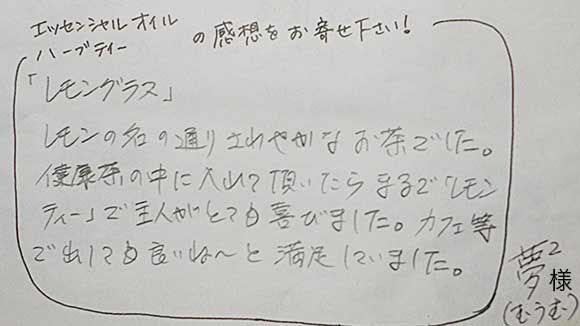 エッセンシャルオイル
ハーブティー の感想をお寄せ下さい!
「レモングラス」
レモンの名の通りさわやかなお茶でした。
健康茶の中に入れて頂いたらまるで「レモン
ティー」で主人がとても喜びました。カフェ等
で出しても良いね〜と満足していました。
夢² 様
(むうむ)